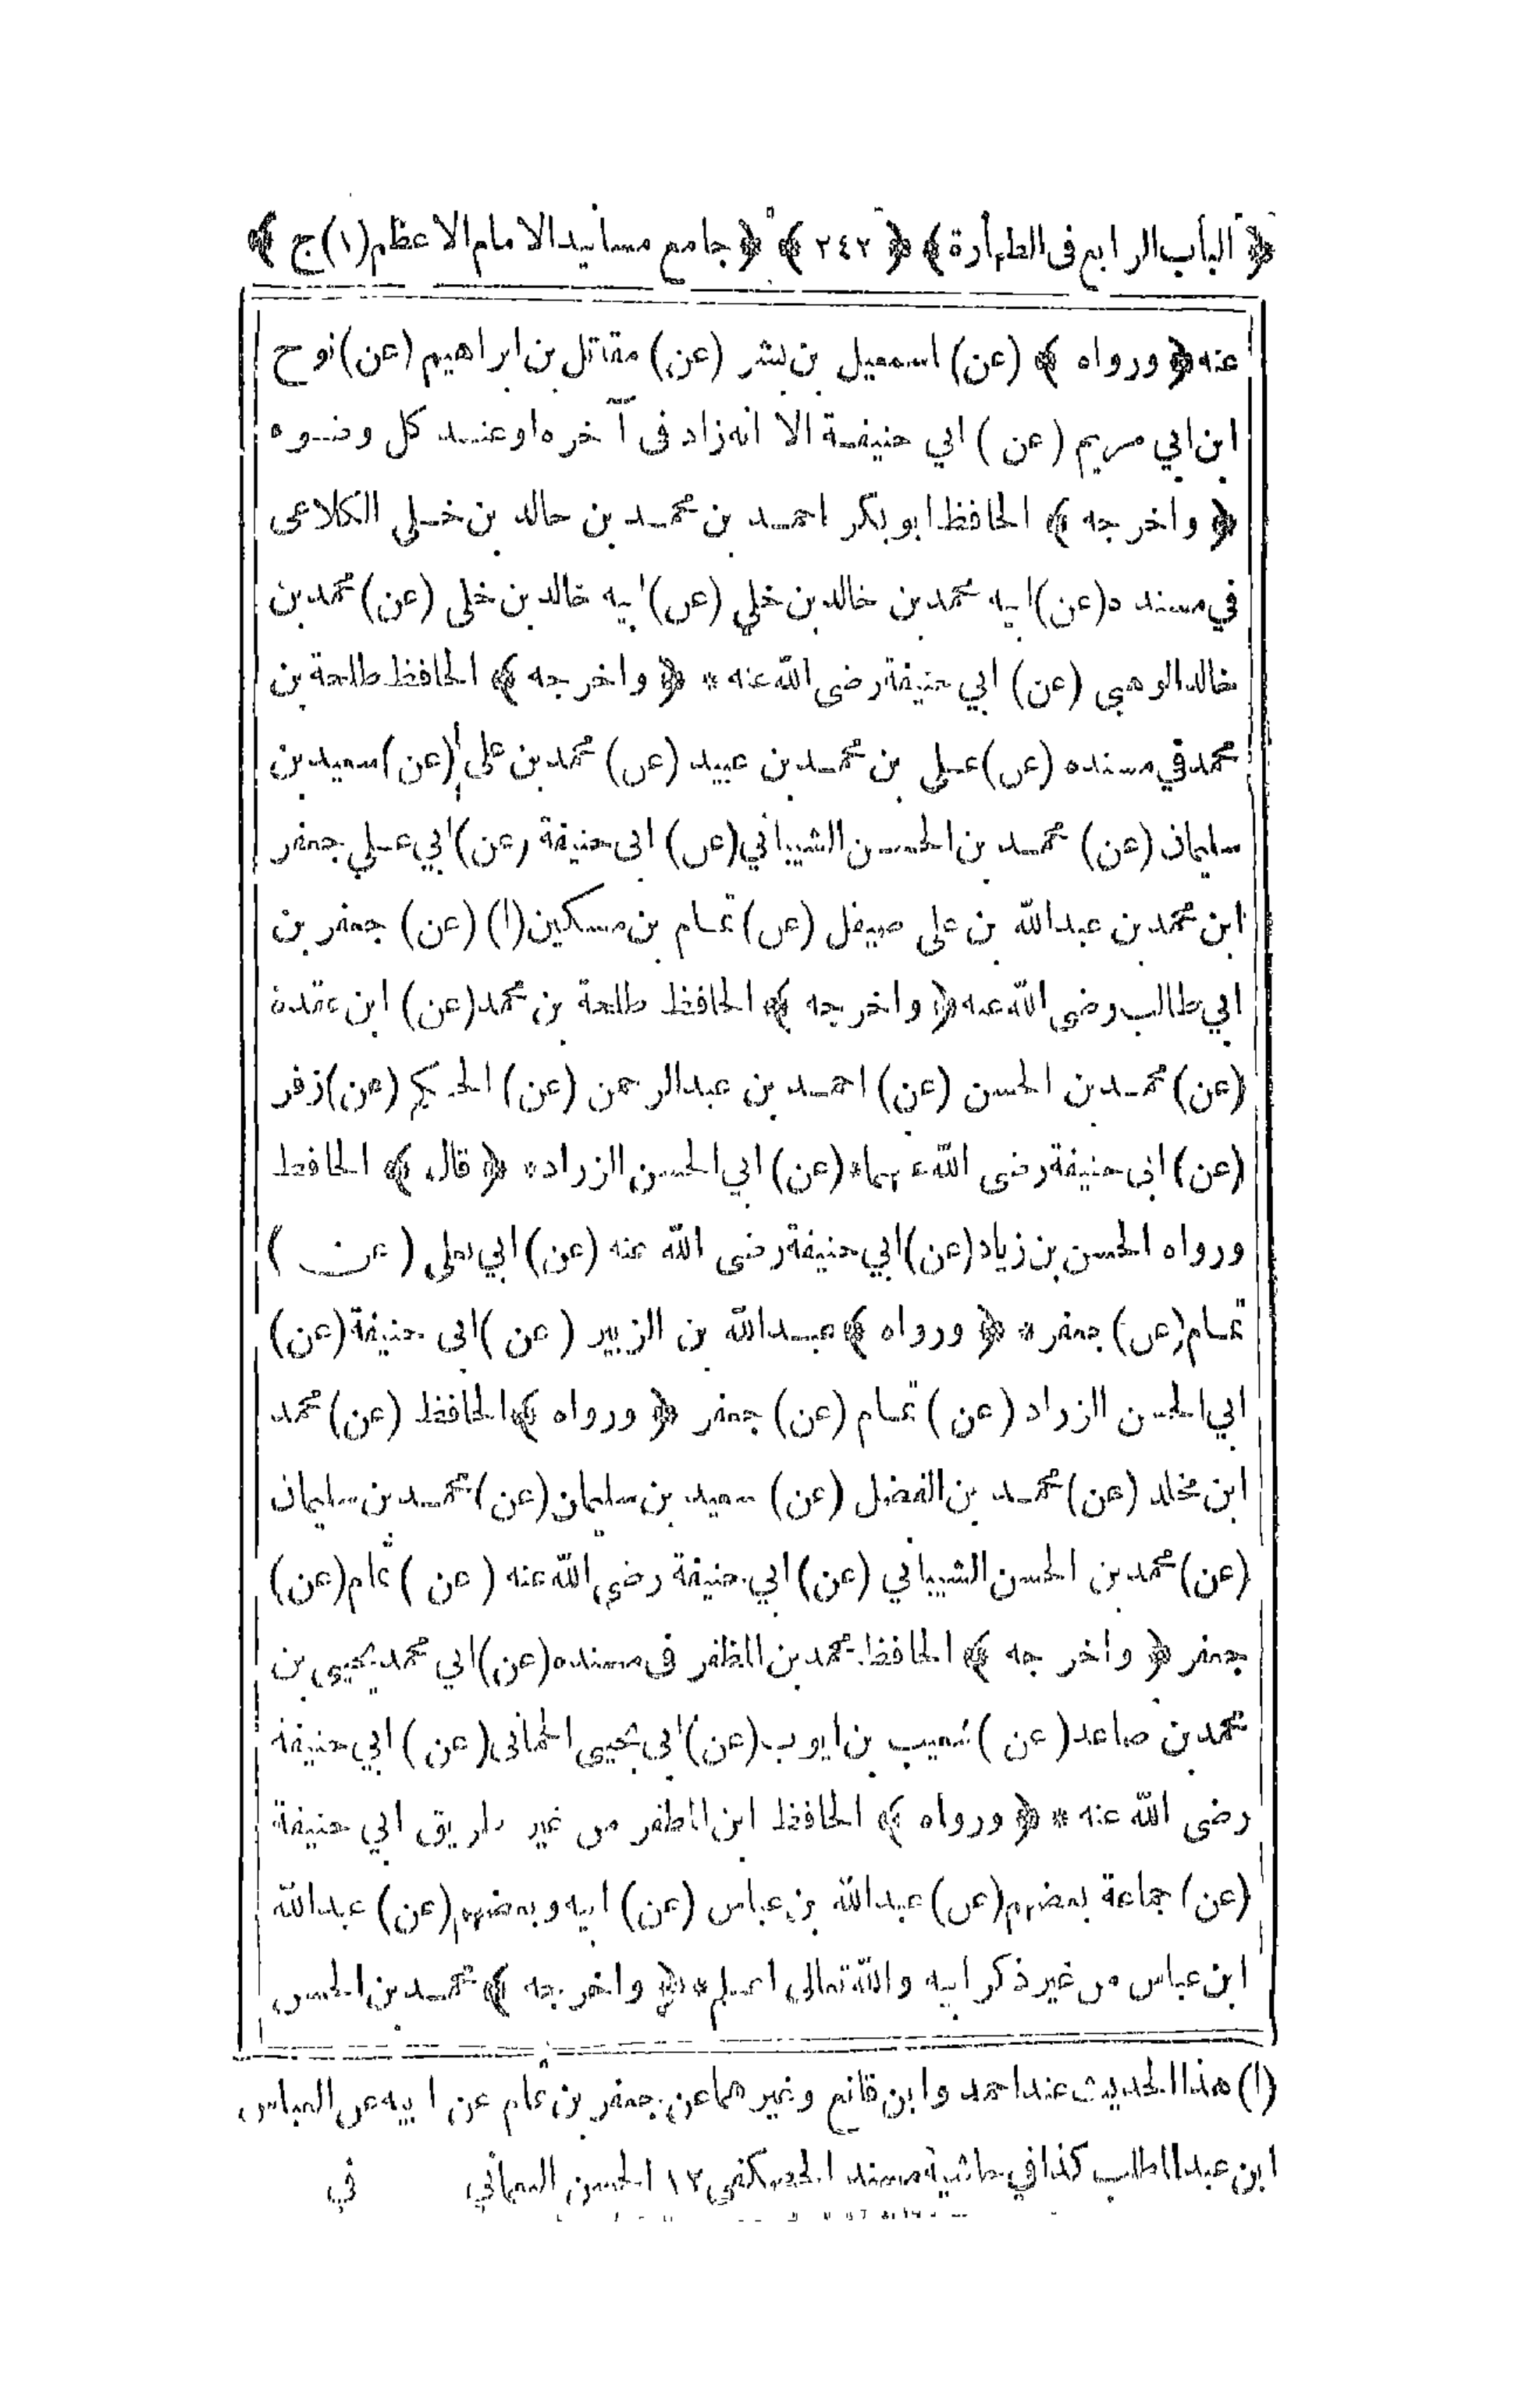 ﴿ الباب الرابع فى الطهارة ﴾ ﴿ ٢٤٢ ﴾ ﴿ جامع مسانيد الامام الاعظم (١) ج ﴾
عنه ﴿ ورواه ﴾ (عن) اسمعيل بن بشر (عن) مقاتل بن ابراهيم (عن) نوح
ابن ابي مريم (عن) ابي حنيفة الا انه زاد فى آخره او عند كل وضوه
﴿ واخرجه ﴾ الحافظ ابو بكر احمد بن محمد بن خالد بن خلي الكلاعى
في مسنده (عن) ابيه محمد بن خالد بن خلي (عن) ابيه خالد بن خلى (عن) محمد بن
خالد الوهبى (عن) ابي حنيفة رضى الله عنه * ﴿ واخرجه ﴾ الحافظ طلحة بن
محمد في مسنده (عن) على بن محمد بن عبيد (عن) محمد بن على (عن) سعيد بن
سليمان (عن) محمد بن الحسن الشيباني (عن) ابى حنيفة (عن) ابي على جعفر
ابن محمد بن عبدالله بن على صيقل (عن) تمام بن مسكين (١) (عن) جعفر بن
ابي طالب رضى الله عنه ﴿ واخرجه ﴾ الحافظ طلحة بن محمد (عن) ابن عقدة
(عن) محمد بن الحسن (عن) احمد بن عبدالرحمن (عن) الحكم (عن) زفر
(عن) ابى حنيفة رضى الله عنهما * (عن) ابي الحسن الزراد * ﴿ قال ﴾ الحافظ
ورواه الحسن بن زياد (عن) ابي حنيفة رضى الله عنه (عن) ابي يعلى (عن)
تمام (عن) جعفر * ﴿ ورواه ﴾ عبدالله بن الزبير (عن) ابى حنيفة (عن)
ابي الحسن الزراد (عن) تمام (عن) جعفر ﴿ ورواه ﴾ الحافظ (عن) محمد
ابن مخلد (عن) محمد بن الفضل (عن) سعيد بن سليمان (عن) محمد بن سليمان
(عن) محمد بن الحسن الشيباني (عن) ابي حنيفة رضى الله عنه (عن) تمام (عن)
جعفر ﴿ واخرجه ﴾ الحافظ محمد بن المظفر فى مسنده (عن) ابي محمد يحيى بن
محمد بن صاعد (عن) شعيب بن ايوب (عن) ابى يحيى الحمانى (عن) ابي حنيفة
رضى الله عنه * ﴿ ورواه ﴾ الحافظ ابن المظفر من غير طريق ابي حنيفة
(عن) جماعة بعضهم (عن) عبدالله بن عباس (عن) ابيه وبعضهم (عن) عبدالله
ابن عباس من غير ذكر ابيه والله تعالى اعلم * ﴿ واخرجه ﴾ محمد بن الحسن
(١) هذا الحديث عند احمد وابن قانع وغيرهما عن جعفر بن تمام عن ابيه عن العباس
ابن عبدالمطلب كذا في حاشية مسند الحصكفى ١٢ الحسن النعماني في